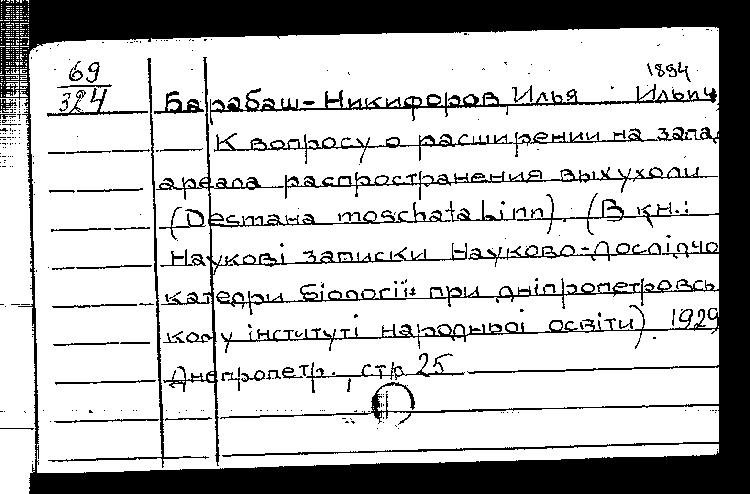 69
324
1894
Барабаш-Никифоров, Илья Ильич,
К вопросу о расширении на запад
ареала распространения выхухоли
(Desmana moschata Linn). (В кн.:
Наукові записки Науково-дослідчо
катедри біології при дніпропетровсь
кому інституті народньої освіти). 1929
Днепропетр., стр 25